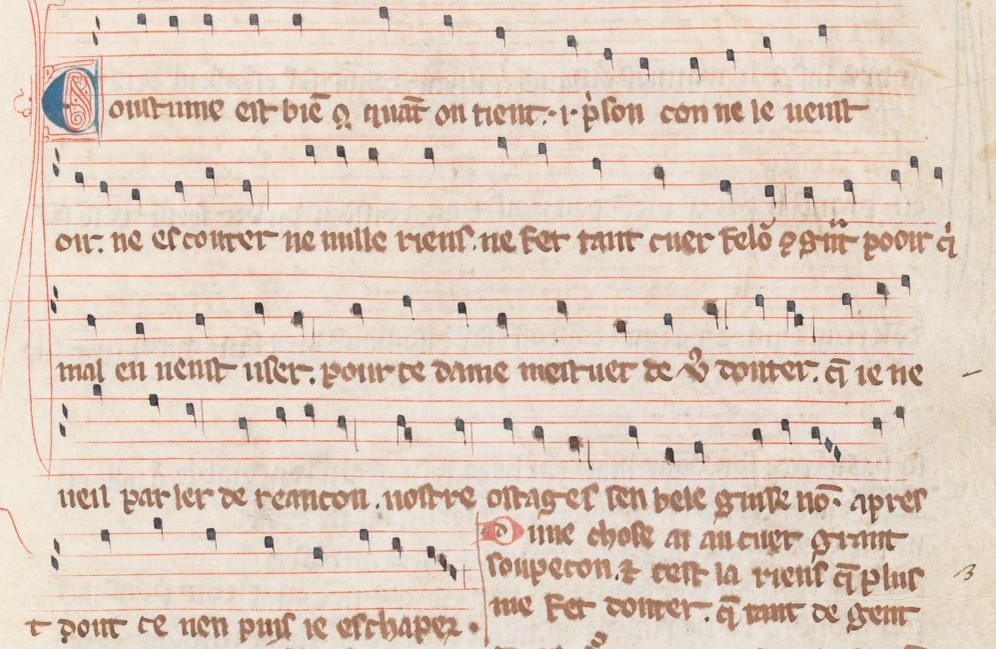 Coustume est biẽ q̃ quãt on tient · i · p̉son con ne le ueust
oir. ne escouter ne nulle riens. ne fet tant cuer felõ 9 gnt pooir q̉
mal en ueust user. pour ce dame mestuet de u9 douter. q̃ ie ne
ueil parler de reancon. nostre ostages sen bele guise nõ. apres
t dont ce nen puis ie eschaper.
Dune chose ai au cuer grant
soupecon. ⁊ cest la riens q̃ plus
me fet douter. q̃ tant de gent